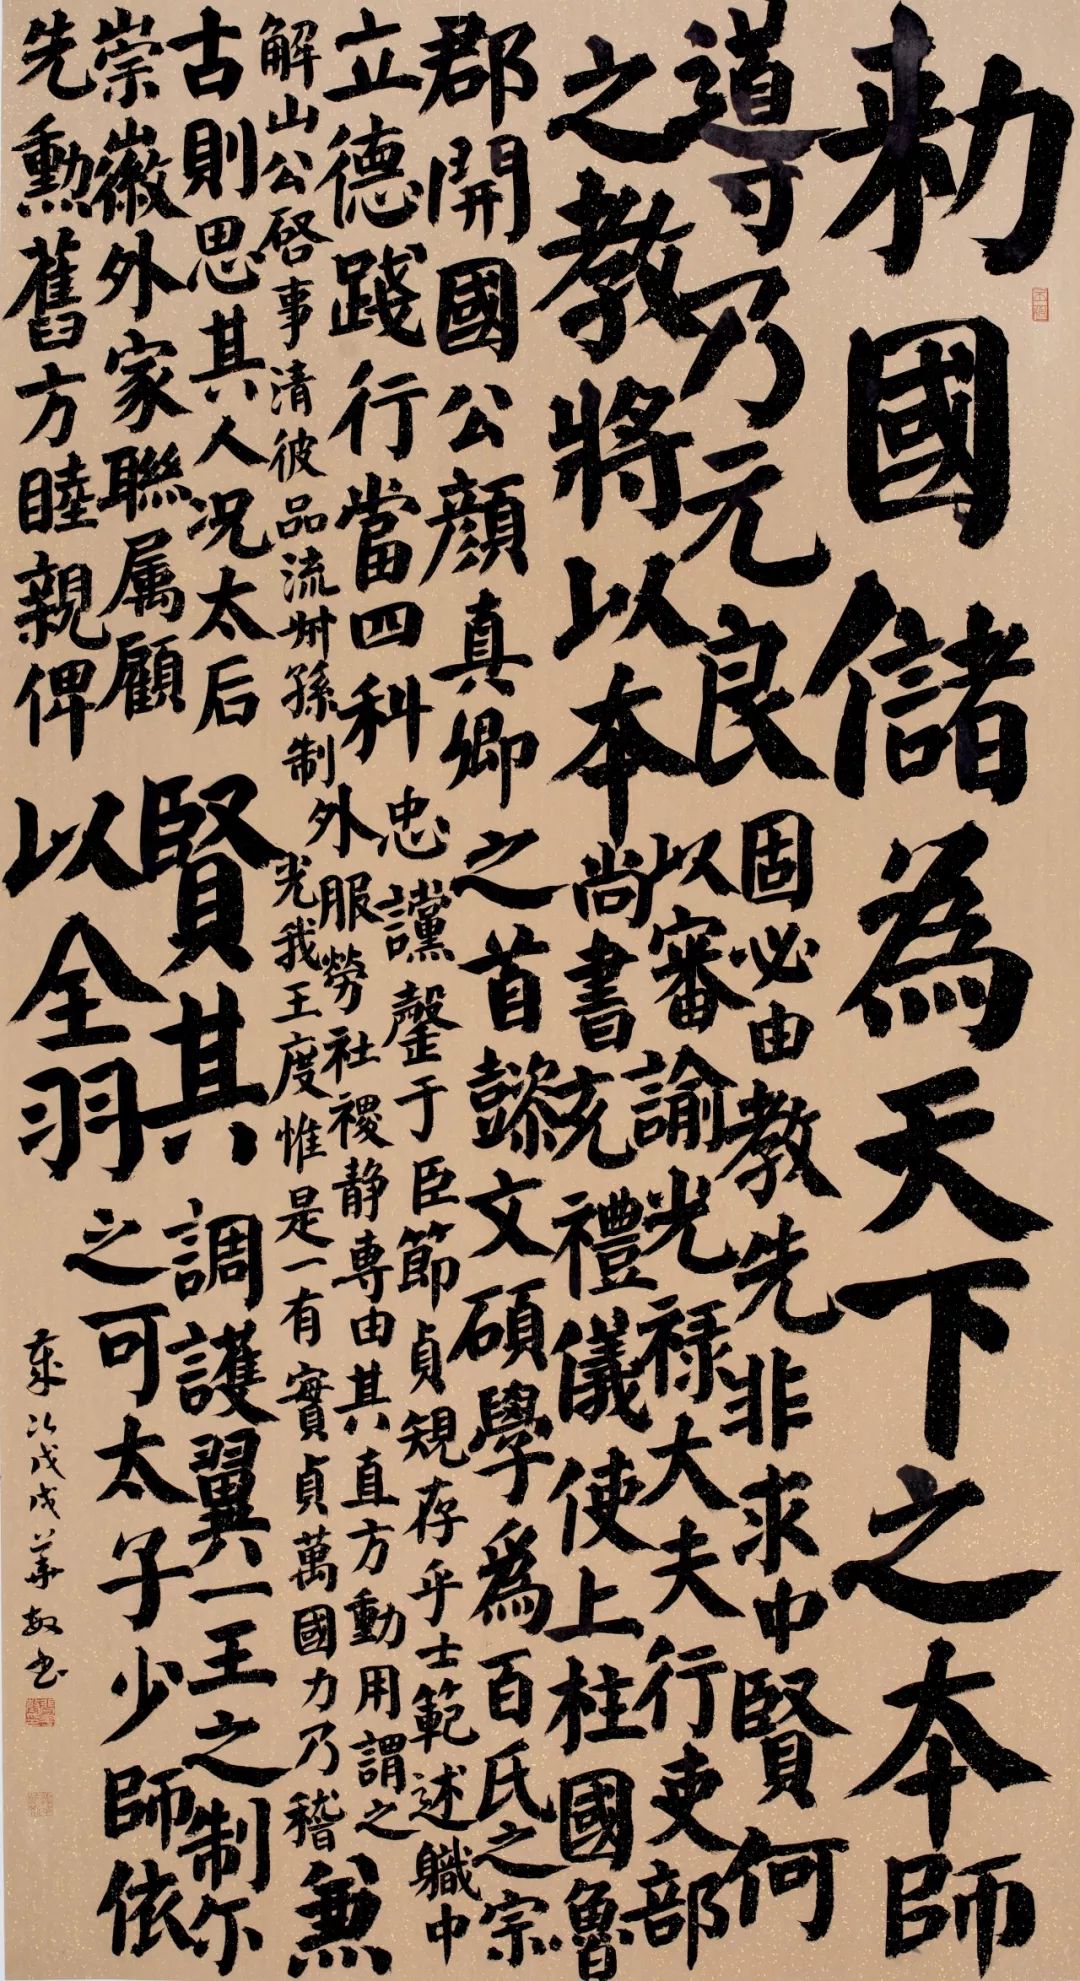 勅國儲為天下之本師
導乃元良固必由教先非求中賢何
之教將以本以審諭光禄大夫行吏部
尚書充禮儀使上柱國魯
郡開國公顏真卿之首懿文碩學爲百氏之宗
立德踐行當四科忠讜罄于臣節貞規存乎士範述職中
解山公啓事清彼品流叔孫制外服勞社稷静専由其直方動用謂之
光我王度惟是一有實貞萬國力乃稽兼
古則思其人况太后賢其調護翼一王之制尔
崇徽外家聯属顧
先勲舊方睦親俾以全羽之可太子少師依
歲次戊戌華敏書